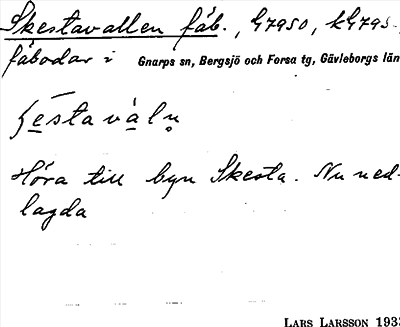 Skestavallen fäb., G7950, kG795-
fäbodar i Gnarps sn, Bergsjö och Forsa tg, Gävleborgs län
ʃéstavàlṇ
Höra till byn Skesta. Nu ned-
lagda
LARS LARSSON 193